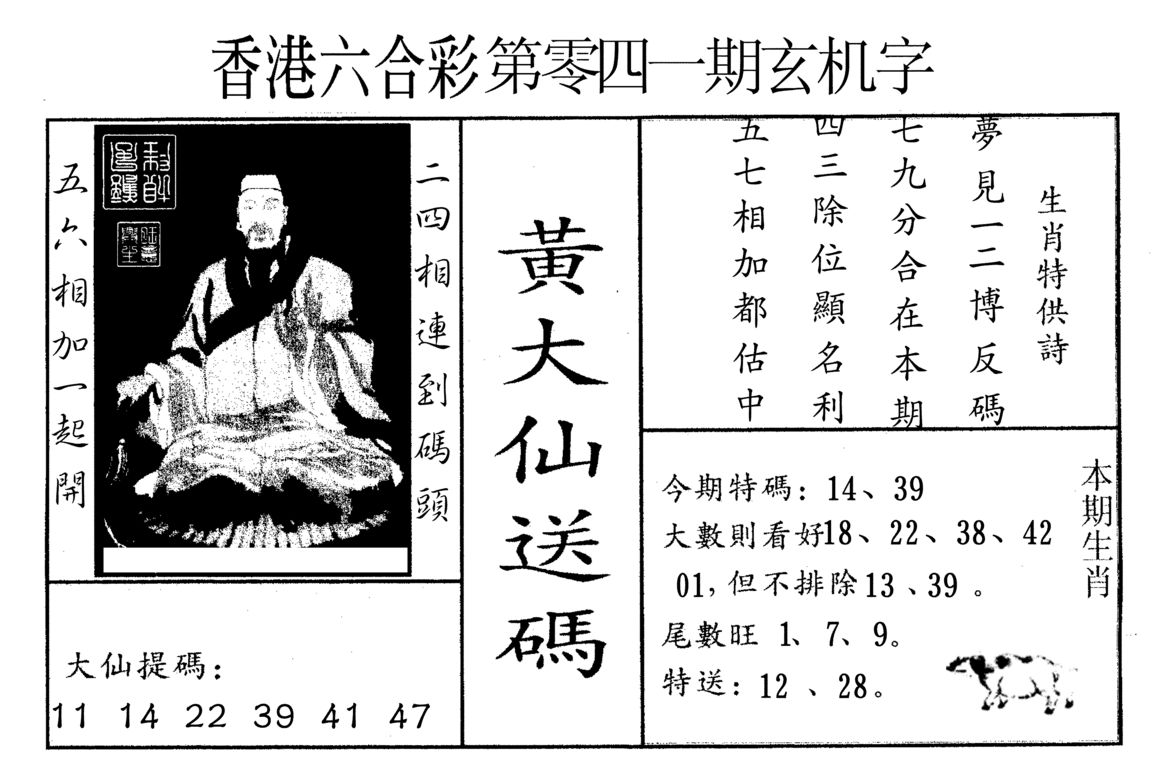 香港六合彩第零四一期玄机字
二四相連到碼頭
五六相加一起開
大仙提碼：
11 14 22 39 41 47
黃大仙送碼
生肖特供詩
夢見一二博反碼
七九分合在本期
四三除位顯名利
五七相加都估中
本期生肖
今期特碼：14、39
大數則看好18、22、38、42
01，但不排除13、39。
尾數旺 1、7、9。
特送：12、28。